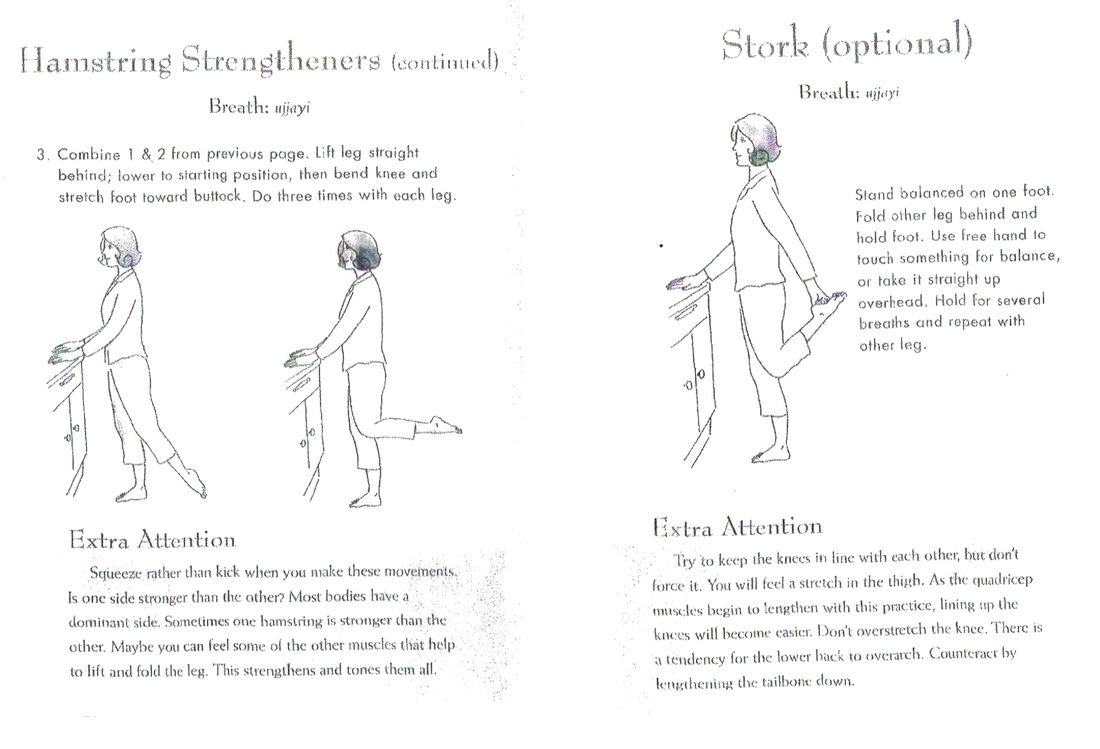 Hamstring Strengtheners (continued)
Breath: ujjayi
3. Combine 1 & 2 from previous page. Lift leg straight
behind; lower to starting position, then bend knee and
stretch foot toward buttock. Do three times with each leg.
Extra Attention
Squeeze rather than kick when you make these movements.
Is one side stronger than the other? Most bodies have a
dominant side. Sometimes one hamstring is stronger than the
other. Maybe you can feel some of the other muscles that help
to lift and fold the leg. This strengthens and tones them all.
Stork (optional)
Breath: ujjayi
Stand balanced on one foot.
Fold other leg behind and
hold foot. Use free hand to
touch something for balance,
or take it straight up
overhead. Hold for several
breaths and repeat with
other leg.
Extra Attention
Try to keep the knees in line with each other, but don't
force it. You will feel a stretch in the thigh. As the quadricep
muscles begin to lengthen with this practice, lining up the
knees will become easier. Don't overstretch the knee. There is
a tendency for the lower back to overarch. Counteract by
lengthening the tailbone down.